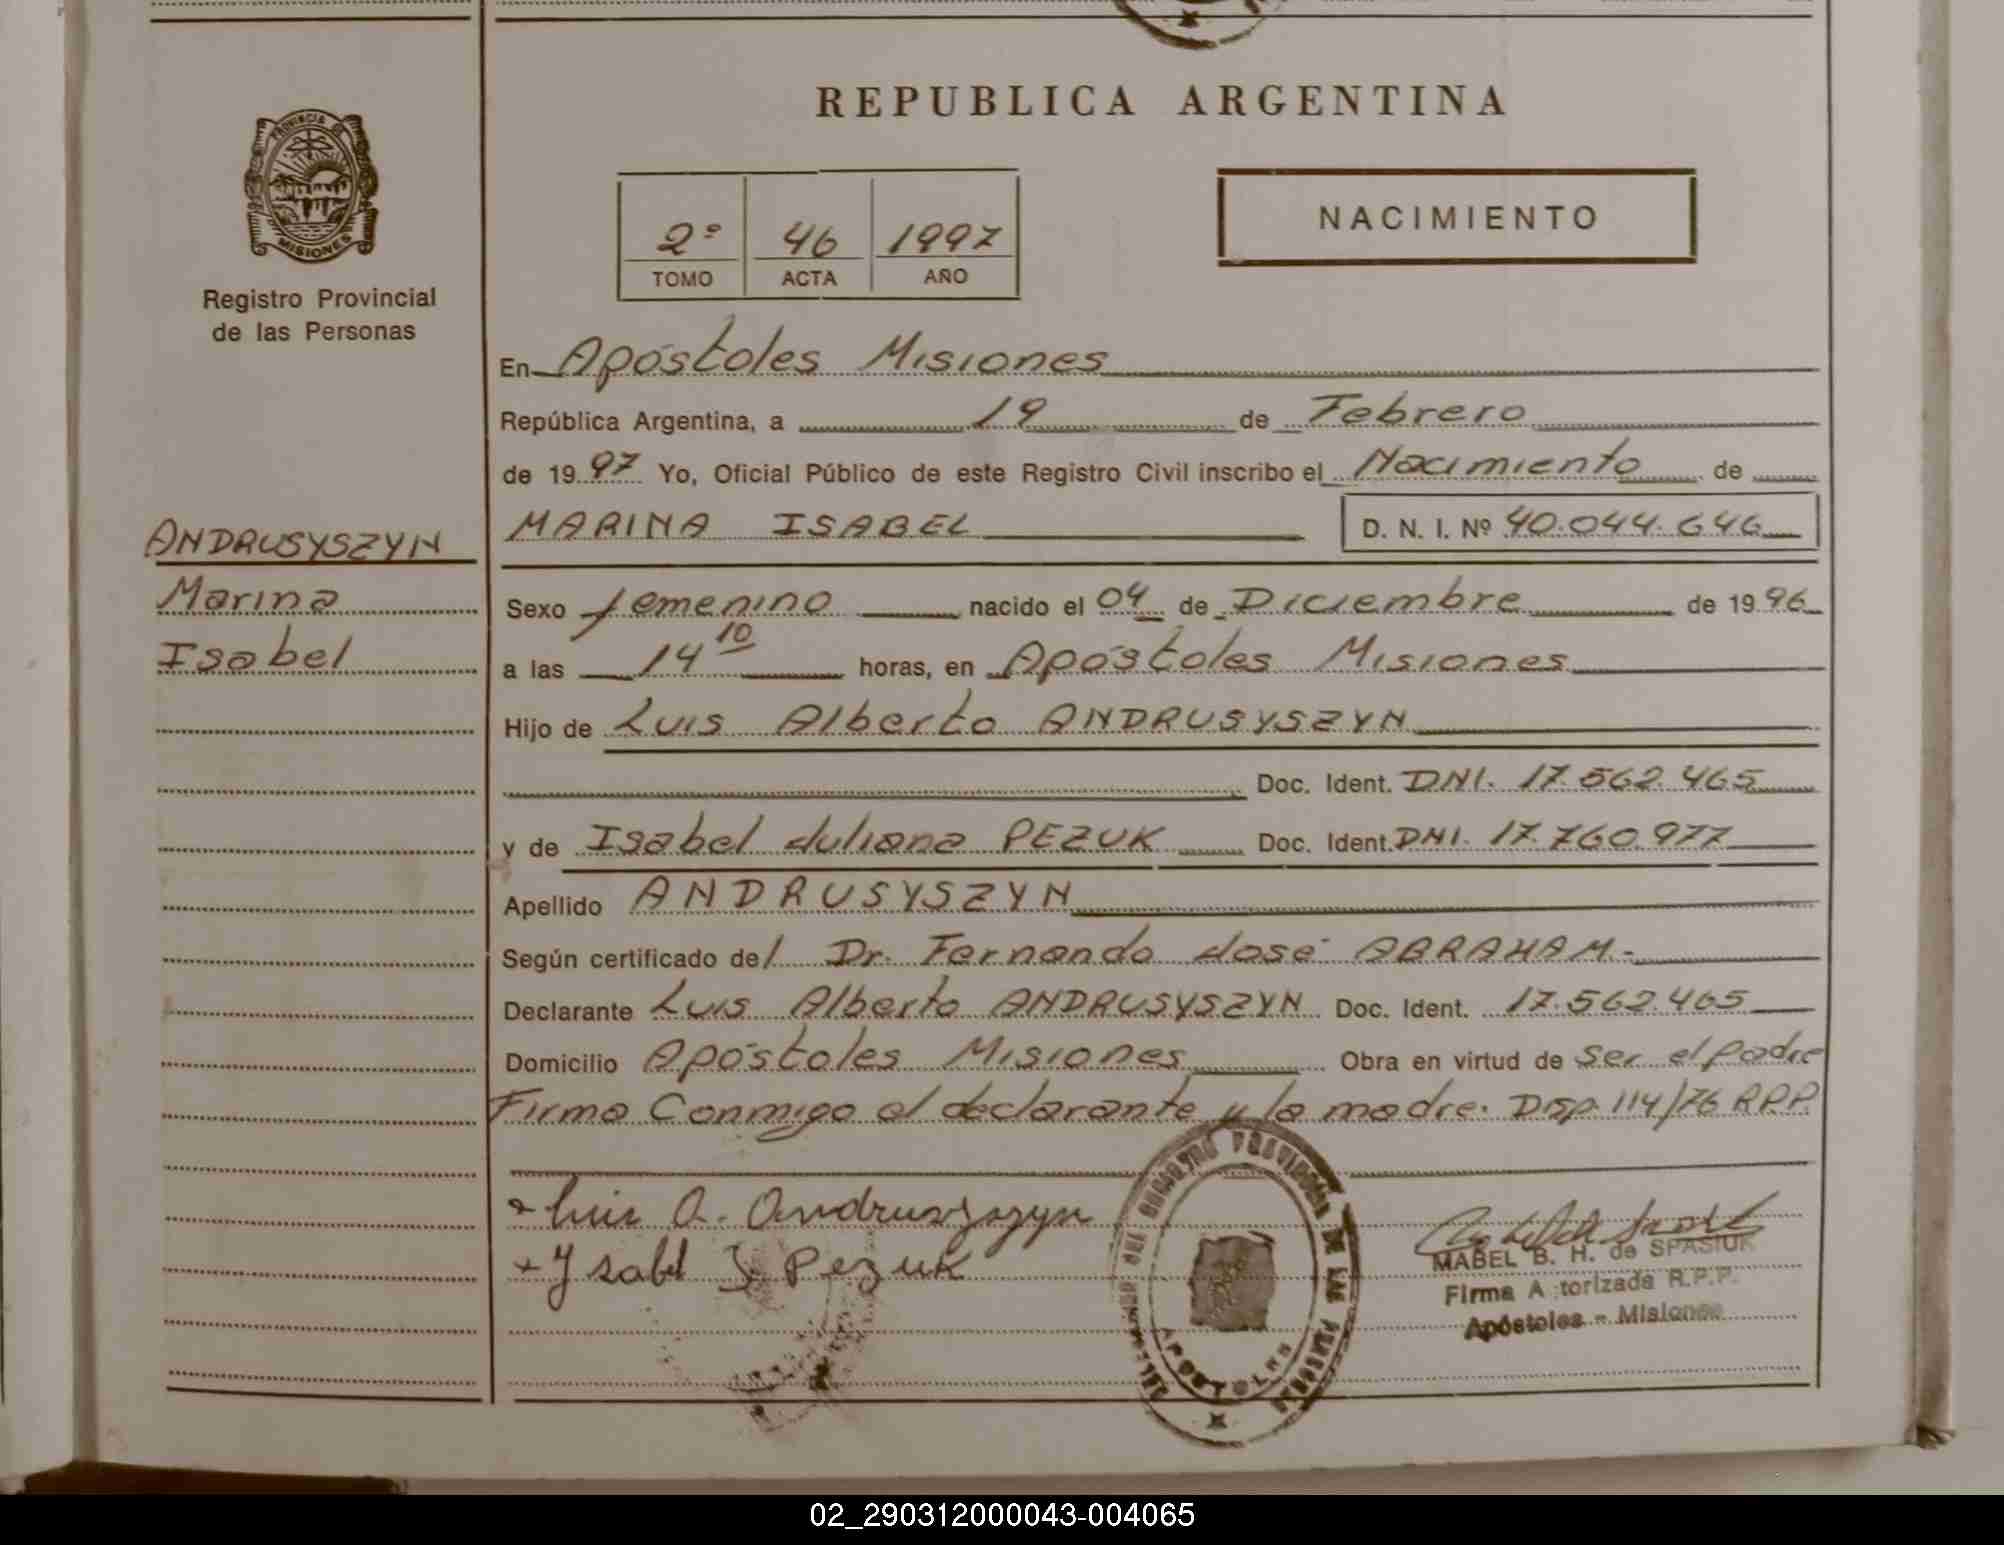 REPUBLICA ARGENTINA
PROVINCIA DE
MISIONES
Registro Provincial
de las Personas
2º 46 1997
TOMO ACTA AÑO
NACIMIENTO
En Apóstoles Misiones
República Argentina, a 19 de Febrero
de 1997 Yo, Oficial Público de este Registro Civil inscribo el Nacimiento de
MARINA ISABEL D. N. I. Nº 40.044.646
ANDRUSYSZYN
Marina
Isabel
Sexo femenino nacido el 04 de Diciembre de 1996
a las 14 10 horas, en Apóstoles Misiones
Hijo de Luis Alberto ANDRUSYSZYN
Doc. Ident. DNI. 17.562.465
y de Isabel Juliana PEZUK Doc. Ident. DNI. 17.760.977
Apellido ANDRUSYSZYN
Según certificado del Dr. Fernando José ABRAHAM.-
Declarante Luis Alberto ANDRUSYSZYN Doc. Ident. 17.562.465
Domicilio Apóstoles Misiones Obra en virtud de ser el padre
Firma Conmigo el declarante y la madre. Disp. 114/76 R.P.P.
Luis A. Andrusyszyn
Ysabel J Pezuk
PROVINCIAL DE LAS PERSONAS
APOSTOLES
MABEL B. H. de SPASIUK
Firma A torizada R.P.P.
Apóstoles - Misiones
02_290312000043-004065